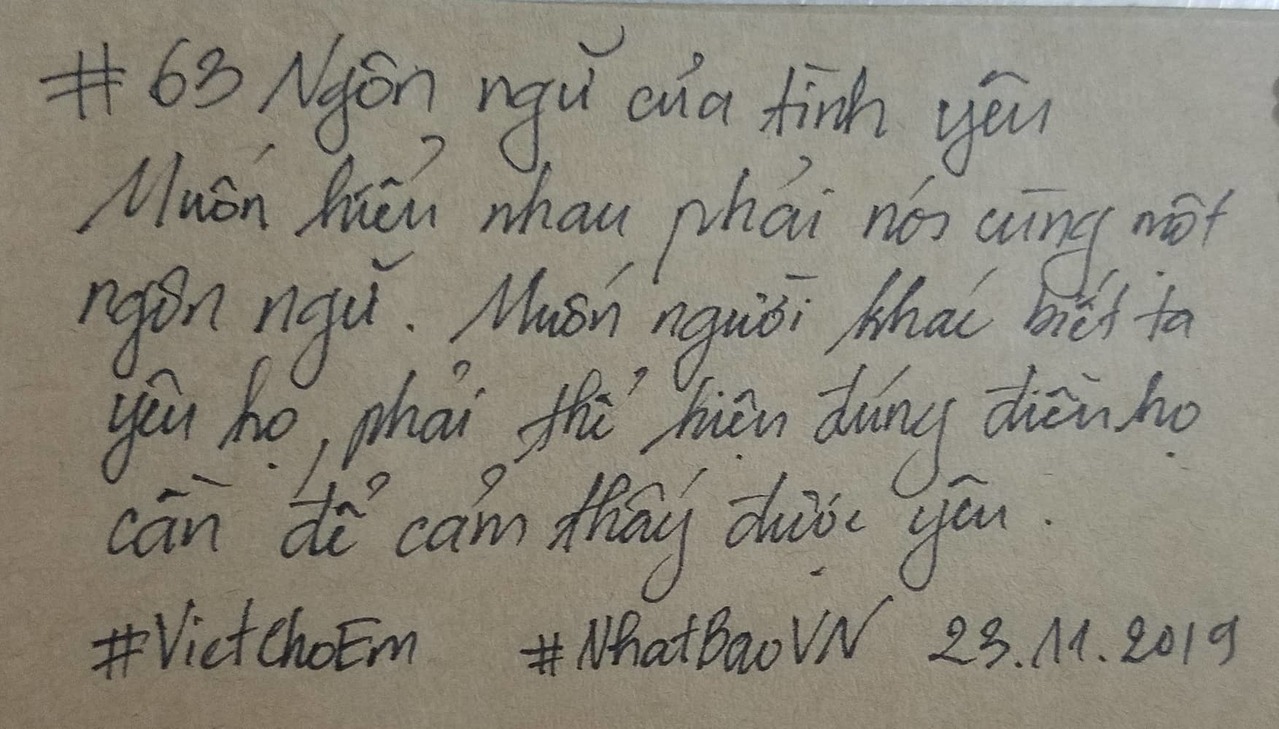 #63 Ngôn ngữ của tình yêu
Muốn hiểu nhau phải nói cùng một
ngôn ngữ. Muốn người khác biết ta
yêu họ, phải thể hiện đúng điều họ
cần để cảm thấy được yêu.
#VietChoEm #NhatBaoVN 23.11.2019